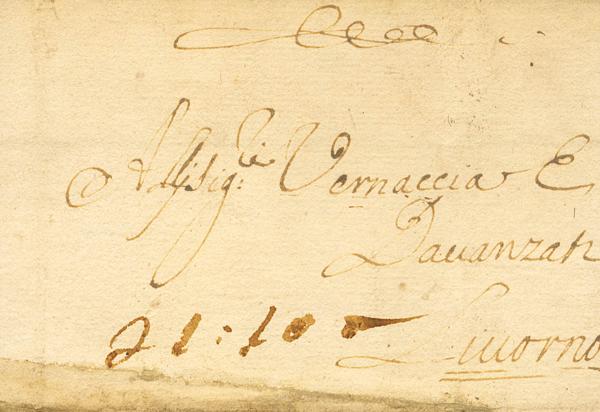 Alli Sig.ri Vernaccia E
Davanzati
Livorno